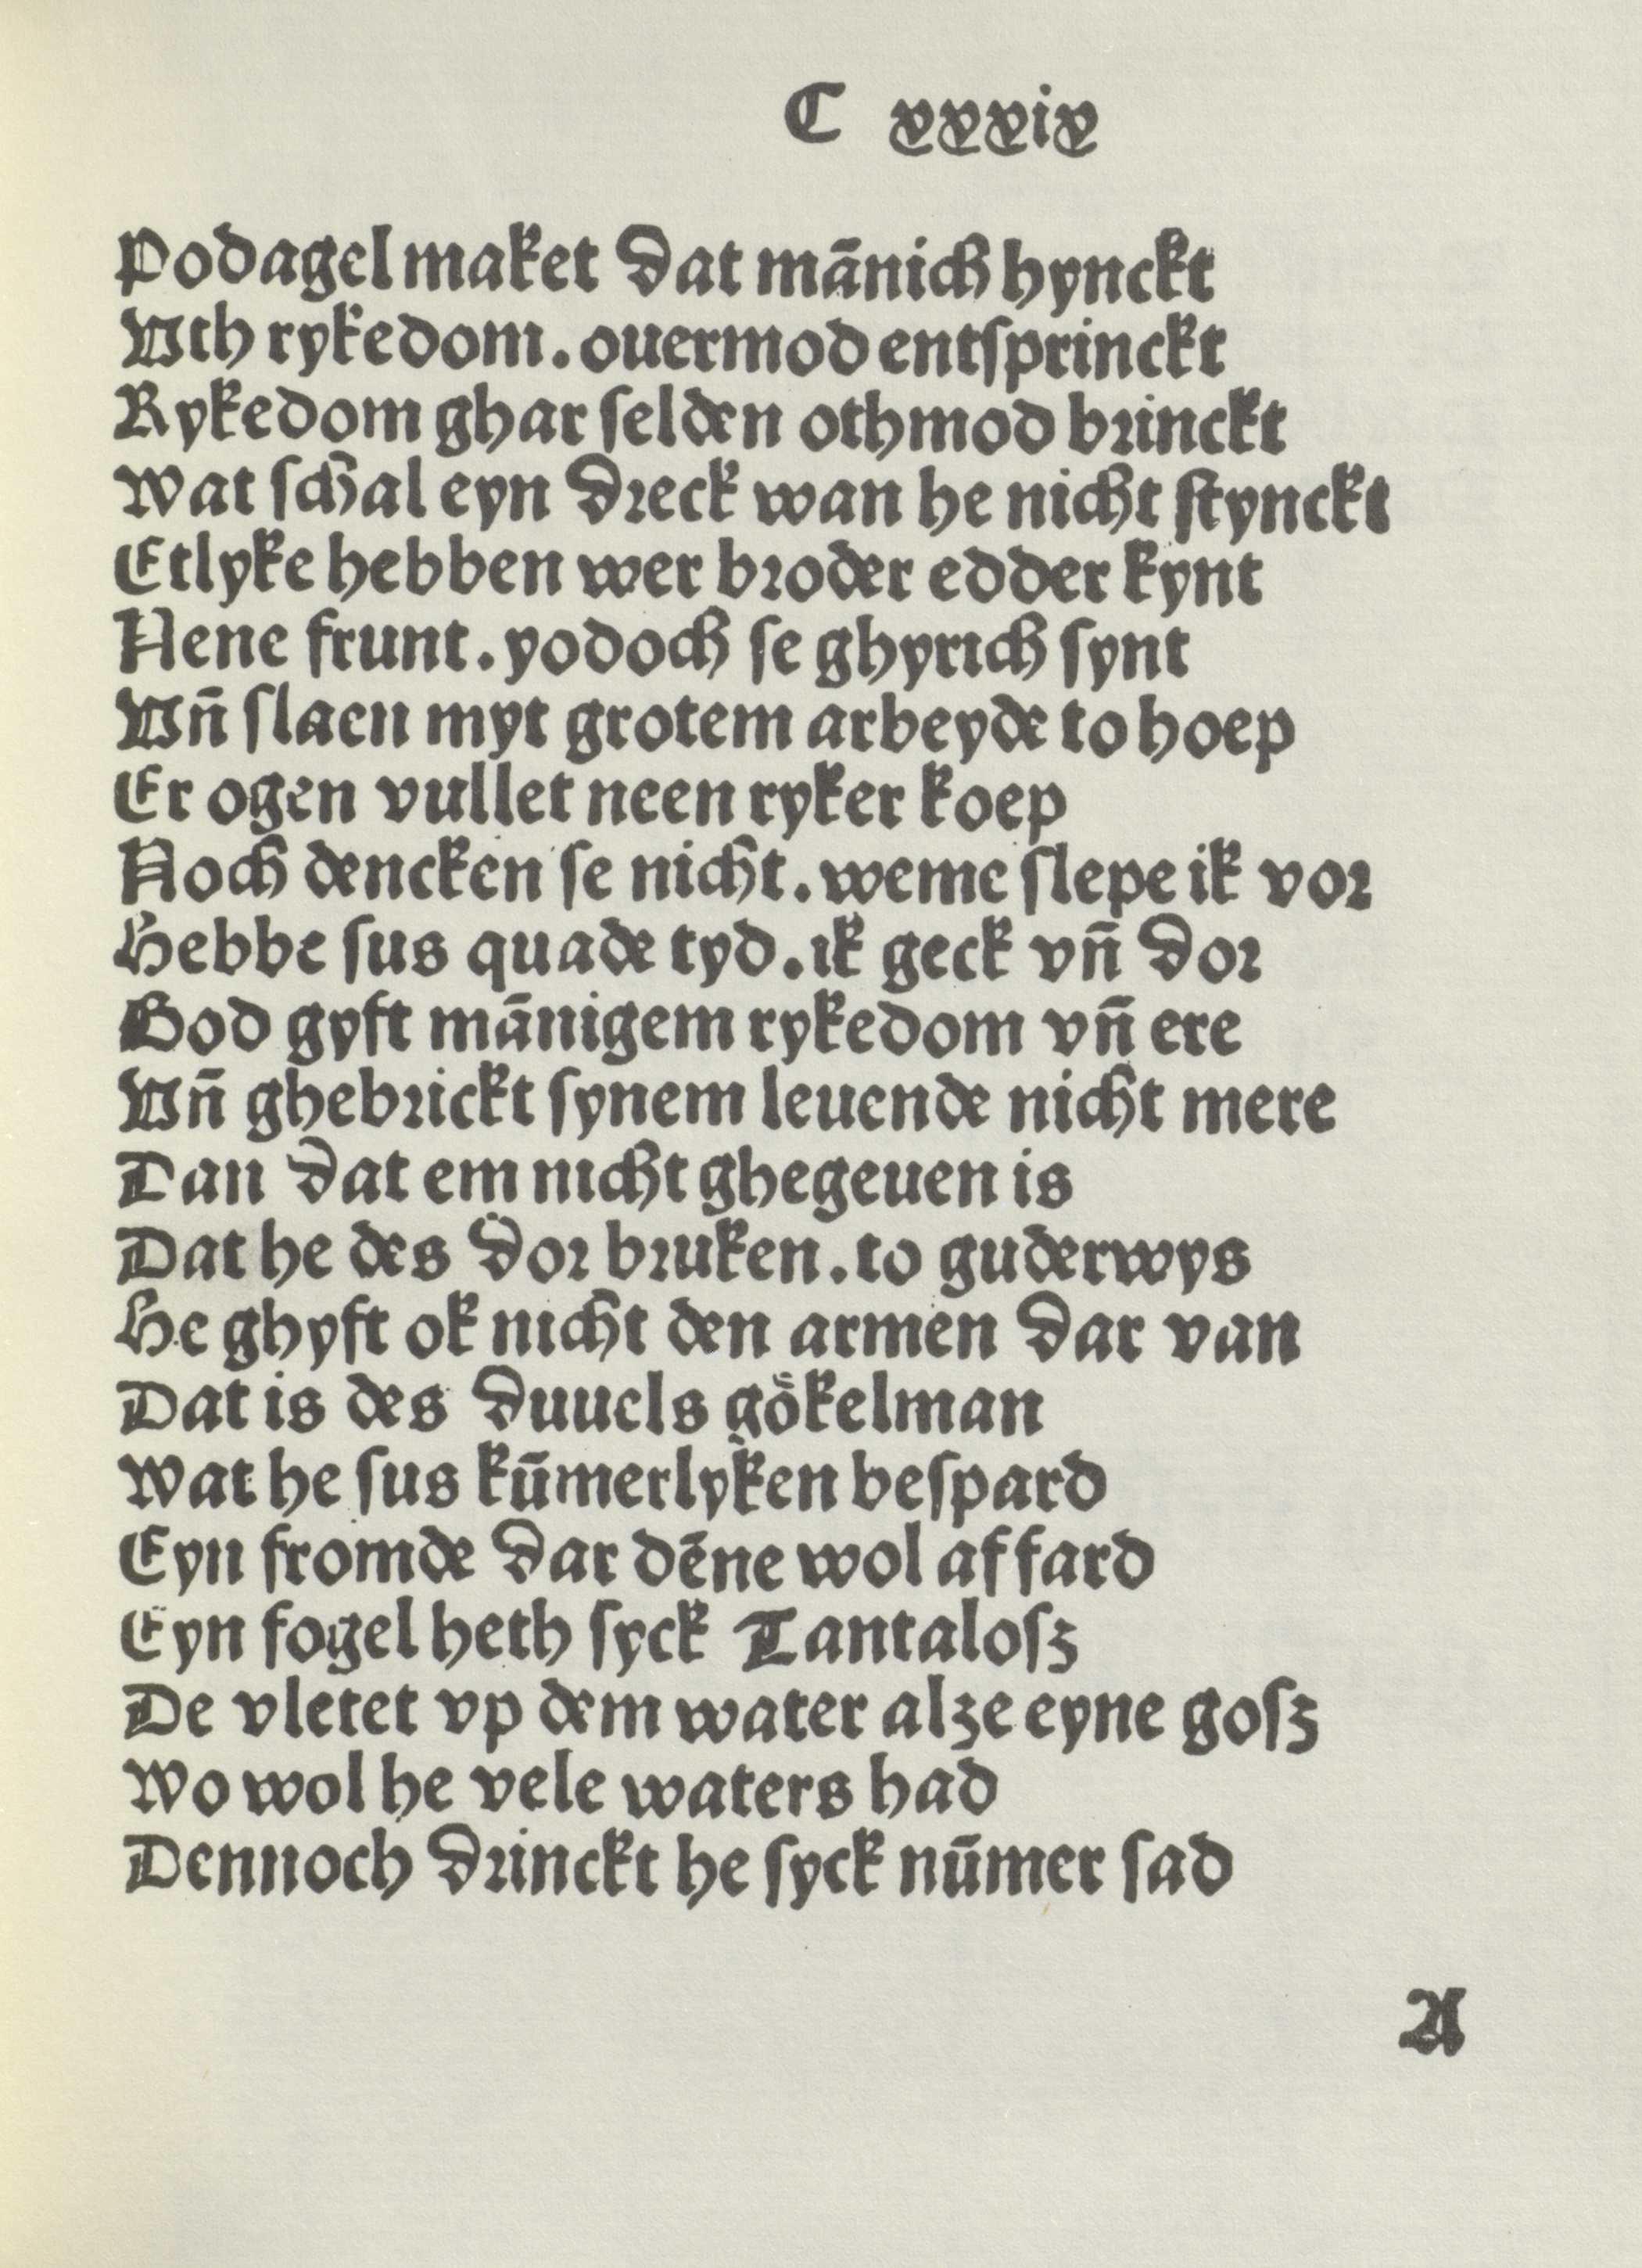 C xxxix
Podagel maket dat mānich hynckt
Vth rykedom. ouermod entſprinckt
Rykedom ghar ſelden othmod brinckt
Wat ſchal eyn dreck wan he nicht ſtynckt
Etlyke hebben wer broder edder kynt
Nene frunt. yodoch ſe ghyrich ſynt
Vn̄ ſlaen myt grotem arbeyde to hoep
Er ogen vullet neen ryker koep
Noch dencken ſe nicht. weme ſlepe ik vor
Hebbe ſus quade tyd. ik geck vn̄ dor
God gyft mānigem rykedom vn̄ ere
Vn̄ ghebrickt ſynem leuende nicht mere
Dan dat em nicht ghegeuen is
Dat he des dor bruken. to guderwys
He ghyft ok nicht den armen dar van
Dat is des duuels goͤkelman
Wat he ſus kūmerlyken beſpard
Eyn fromde dar dēne wol af fard
Eyn fogel heth ſyck Tantaloſz
De vletet vp dem water alze eyne goſz
Wo wol he vele waters had
Dennoch drinckt he ſyck nūmer ſad
A